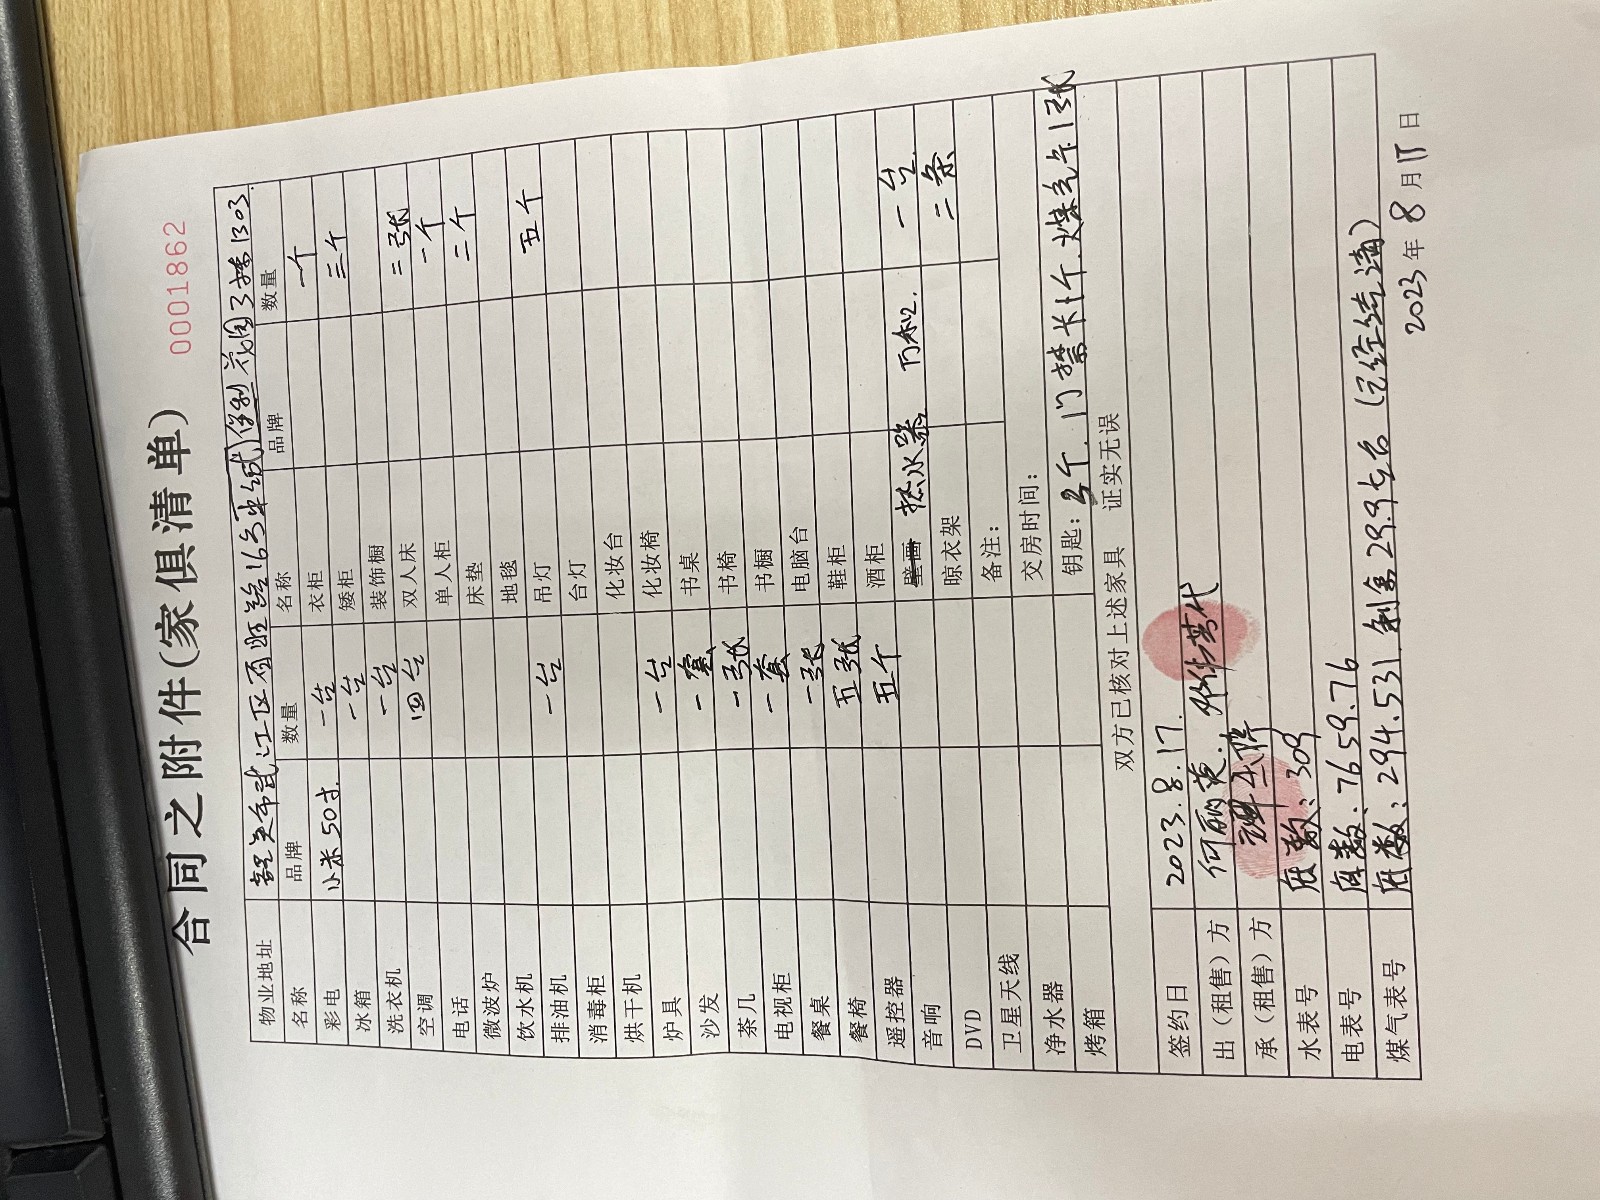 合同之附件(家俱清单)
0001862
物业地址 韶关市武江区百旺路16号 保利花园3栋1303.
名称 品牌 数量 名称 品牌 数量
彩电 小米50寸. 一台 衣柜 一个
冰箱 一台 矮柜 三个
洗衣机 一台 装饰橱
空调 四台 双人床 二张
电话 单人柜 一个
微波炉 床垫 二个
饮水机 地毯
排油机 一台 吊灯 五个
消毒柜 台灯
烘干机 化妆台
炉具 一台 化妆椅
沙发 一套 书桌
茶几 一张 书椅
电视柜 一套 书橱
餐桌 一张 电脑台
餐椅 五张 鞋柜
遥控器 五个 酒柜
音响 壁画 热水器 万和. 一台.
DVD 晾衣架 二条
卫星天线 备注：
净水器 交房时间：
烤箱 钥匙：3个.门禁卡1个.煤气卡1张
双方已核对上述家具 证实无误
签约日 2023.8.17.
出（租售）方 何丽英.
承（租售）方
水表号 底数：309
电表号 底数：7659.76
煤气表号 底数：294.531 剩余29.9左右（已经结清）
2023年8月17日